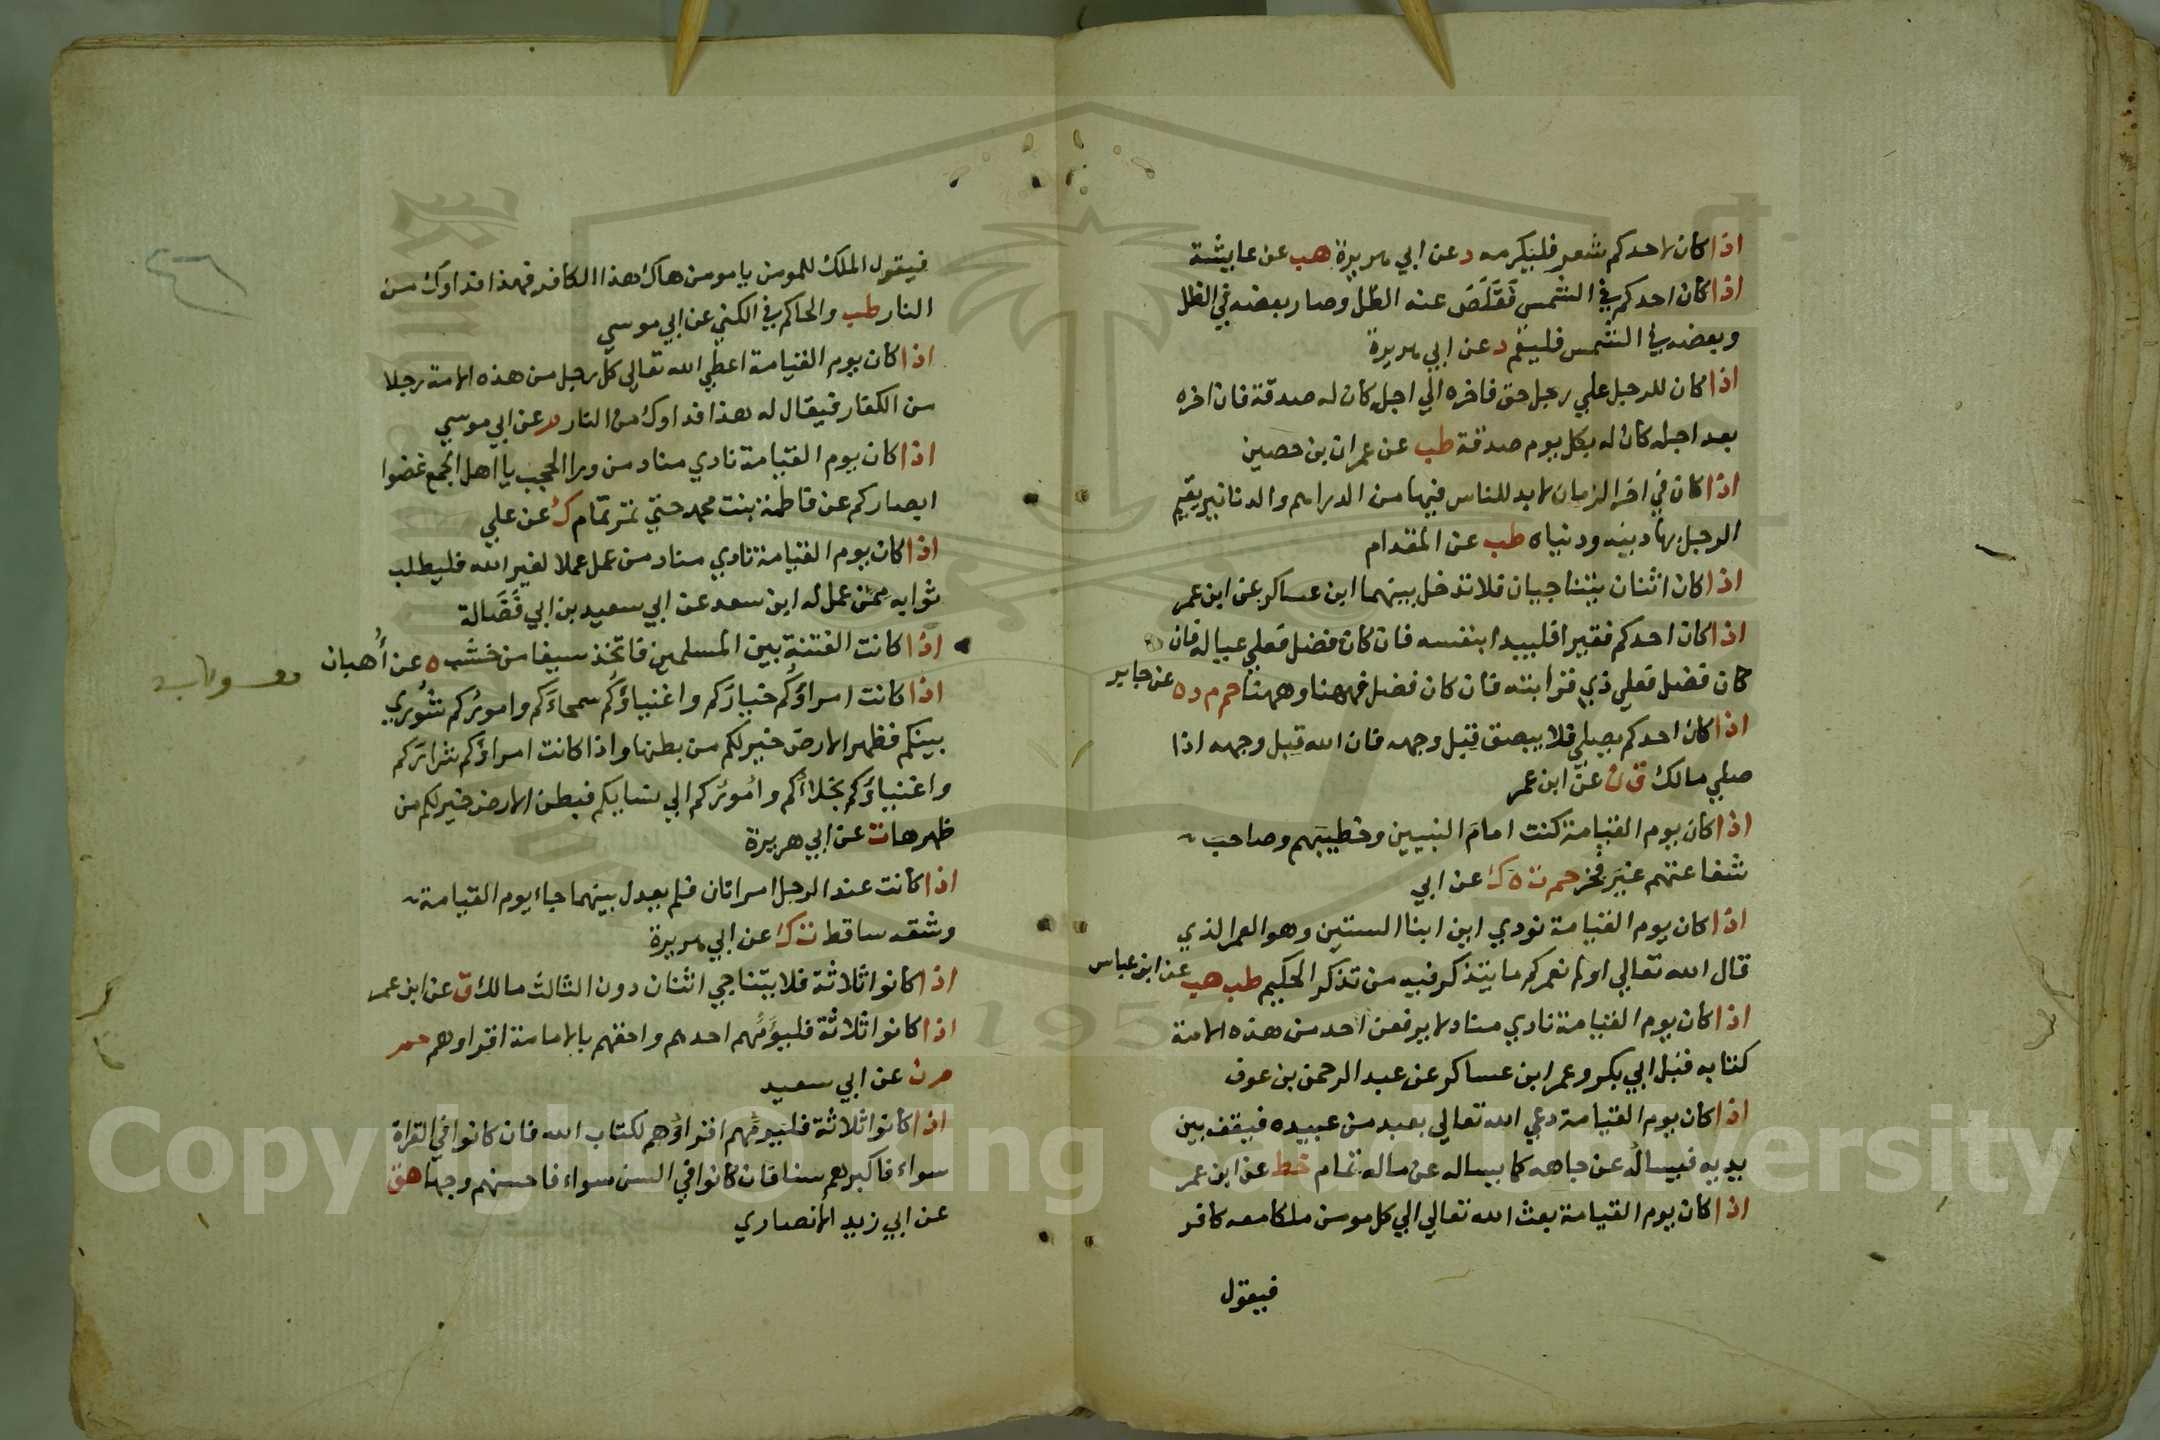 اذا كان لاحدكم شعر فليكرمه د عن ابي هريرة هب عن عايشة
اذا كان احدكم في الشمس فَقَلَصَ عنه الظل وصار بعضه في الظل
وبعضه في الشمس فليقم د عن ابي هريرة
اذا كان للرجل علي رجل حق فاخره الي اجل كان له صدقة فان اخره
بعد اجله كان له بكل يوم صدقة طب عن عمران بن حصين
اذا كان في اخر الزمان لابد للناس فيها من الدراهم والدنانير يقيم
الرجل بها دينه ودنياه طب عن المقدام
اذا كان اثنان يتناجيان فلا تدخل بينهما ابن عساكر عن ابن عمر
اذا كان احدكم فقيرا فليبدا بنفسه فان كان فضل فعلي عياله فان
كان فضل فعلي ذي قرابته فان كان فضل فههنا وههنا حم م د ه عن جابر
اذا كان احدكم يصلي فلا يبصق قبل وجهه فان الله قبل وجهه اذا
صلي مالك ق ن عن ابن عمر
اذا كان يوم القيامة كنت امام النبيين وخطيبهم وصاحب
شفاعتهم غير فخر حم ت ه ك عن ابي
اذا كان يوم القيامة نودي اين ابنا الستين وهو العمر الذي
قال الله تعالي اولم نعمركم ما يتذكر فيه من تذكر الحكيم طب هب عن ابن عباس
اذا كان يوم القيامة نادي مناد لا يرفعن احد من هذه الامة
كتابه قبل ابي بكر وعمر ابن عساكر عن عبد الرحمن بن عوف
اذا كان يوم القيامة دعي الله تعالي بعبد من عبيده فيقف بين
يديه فيساله عن جاهه كما يساله عن ماله تمام خط عن ابن عمر
اذا كان يوم القيامة بعث الله تعالي الي كل مومن ملكا معه كافر
فيقول
فيقول الملك للمومن يا مومن هاك هذا الكافر فهذا فداوك من
النار طب والحاكم في الكني عن ابي موسي
اذا كان يوم القيامة اعطي الله تعالي كل رجل من هذه الامة رجلا
من الكفار فيقال له هذا فداوك من النار م عن ابي موسي
اذا كان يوم القيامة نادي مناد من ورا الحجب يا اهل الجمع غضوا
ابصاركم عن فاطمة بنت محمد حتي تمر تمام ك عن علي
اذا كان يوم القيامة نادي مناد من عمل عملا لغير الله فليطلب
ثوابه ممن عمل له ابن سعد عن ابي سعيد بن ابي فَضَالة
اذا كانت الفتنة بين المسلمين فاتخذ سيفا من خشب ه عن أهبان
اذا كانت امراؤكم خياركم واغنياؤكم سمحاءكم واموركم شوري
بينكم فظهر الارض خير لكم من بطنها واذا كانت امراؤكم شراركم
واغنياؤكم بخلاءكم واموركم الي نسايكم فبطن الارض خير لكم من
ظهرها ت عن ابي هريرة
اذا كانت عند الرجل امراتان فلم يعدل بينهما جاء يوم القيامة
وشقه ساقط ت ك عن ابي هريرة
اذا كانوا ثلاثة فلا يتناجي اثنان دون الثالث مالك ق عن ابن عمر
اذا كانوا ثلاثة فليؤمهم احدهم واحقهم بالامامة اقراوهم حم
م ن عن ابي سعيد
اذا كانوا ثلاثة فليؤمهم اقراؤهم لكتاب الله فان كانوا في القراة
سواء فاكبرهم سنا فان كانوا في السن سواء فاحسنهم وجها هق
عن ابي زيد الانصاري
Copyright © King Saud University
195